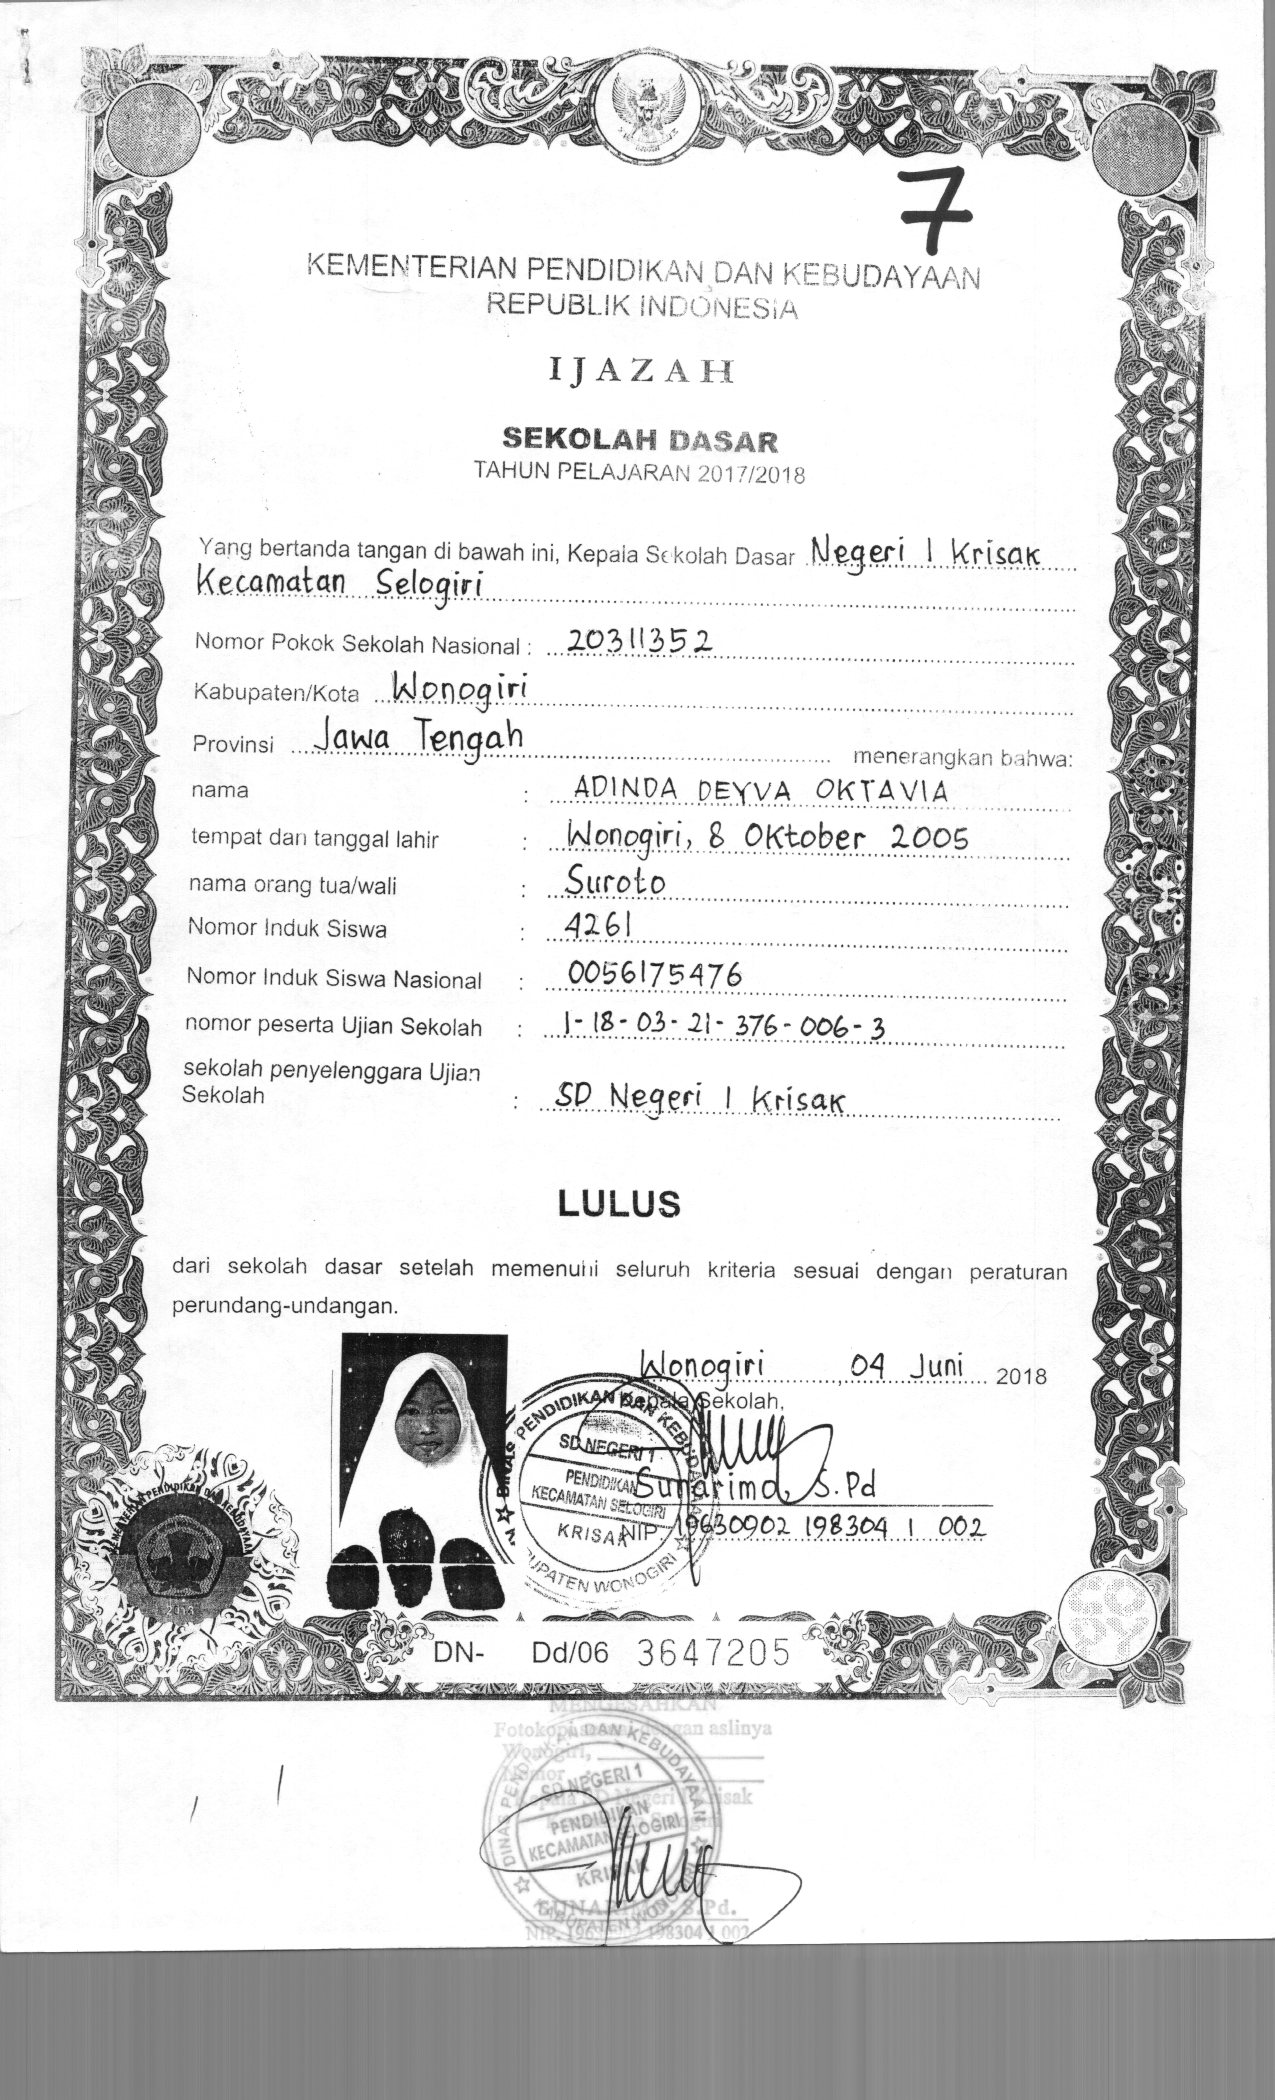 7
KEMENTERIAN PENDIDIKAN DAN KEBUDAYAAN
REPUBLIK INDONESIA
IJAZAH
SEKOLAH DASAR
TAHUN PELAJARAN 2017/2018
Yang bertanda tangan di bawah ini, Kepala Sekolah Dasar Negeri 1 Krisak
Kecamatan Selogiri
Nomor Pokok Sekolah Nasional : 20311352
Kabupaten/Kota Wonogiri
Provinsi Jawa Tengah menerangkan bahwa:
nama : ADINDA DEYVA OKTAVIA
tempat dan tanggal lahir : Wonogiri, 8 Oktober 2005
nama orang tua/wali : Suroto
Nomor Induk Siswa : 4261
Nomor Induk Siswa Nasional : 0056175476
nomor peserta Ujian Sekolah : 1-18-03-21-376-006-3
sekolah penyelenggara Ujian
Sekolah : SD Negeri 1 Krisak
LULUS
dari sekolah dasar setelah memenuhi seluruh kriteria sesuai dengan peraturan
perundang-undangan.
Wonogiri, 04 Juni 2018
Kepala Sekolah,
DINAS PENDIDIKAN DAN KEBUDAYAAN
SD NEGERI 1
PENDIDIKAN
KECAMATAN SELOGIRI
KRISAK
KABUPATEN WONOGIRI
Sunarimo, S.Pd
NIP. 19630902 198304 1 002
DN- Dd/06 3647205
MENGESAHKAN
Fotokopi sesuai dengan aslinya
Wonogiri,
Nomor
Kepala SD Negeri 1 Krisak
DINAS PENDIDIKAN DAN KEBUDAYAAN
SD NEGERI 1
PENDIDIKAN
KECAMATAN SELOGIRI
KRISAK
KABUPATEN WONOGIRI
SUNARIMO, S.Pd.
NIP. 198304 1 002